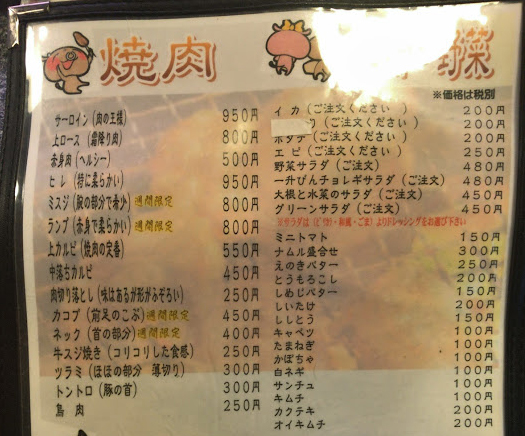 焼肉
サーロイン(肉の王様) 950円
上ロース(霜降り肉) 800円
赤身肉(ヘルシー) 500円
ヒレ(特に柔らかい) 950円
ミスジ(腕の部分で希少)週間限定 800円
ランプ(赤身で柔らかい)週間限定 800円
上カルビ(焼肉の定番) 550円
中落ちカルビ 450円
肉切り落とし(味はあるが形がふぞろい) 250円
カコブ(前足のこぶ)週間限定 450円
ネック(首の部分)週間限定 400円
牛スジ焼き(コリコリした食感) 250円
ツラミ(ほほの部分 薄切り) 300円
トントロ(豚の首) 300円
鳥肉 250円
菜
※価格は税別
イカ(ご注文ください) 200円
(ご注文ください) 200円
ホタテ(ご注文ください) 200円
エビ(ご注文ください) 250円
野菜サラダ(ご注文) 480円
一升びんチョレギサラダ(ご注文) 480円
大根と水菜のサラダ(ご注文) 450円
グリーンサラダ(ご注文) 450円
※サラダは よりドレッシングをお選び下さい
ミニトマト 150円
ナムル盛合せ 300円
えのきバター 250円
とうもろこし 200円
しめじバター 150円
しいたけ 200円
ししとう 150円
キャベツ 100円
たまねぎ 100円
かぼちゃ 100円
白ネギ 100円
サンチュ 100円
キムチ 100円
カクテキ 200円
オイキムチ 200円